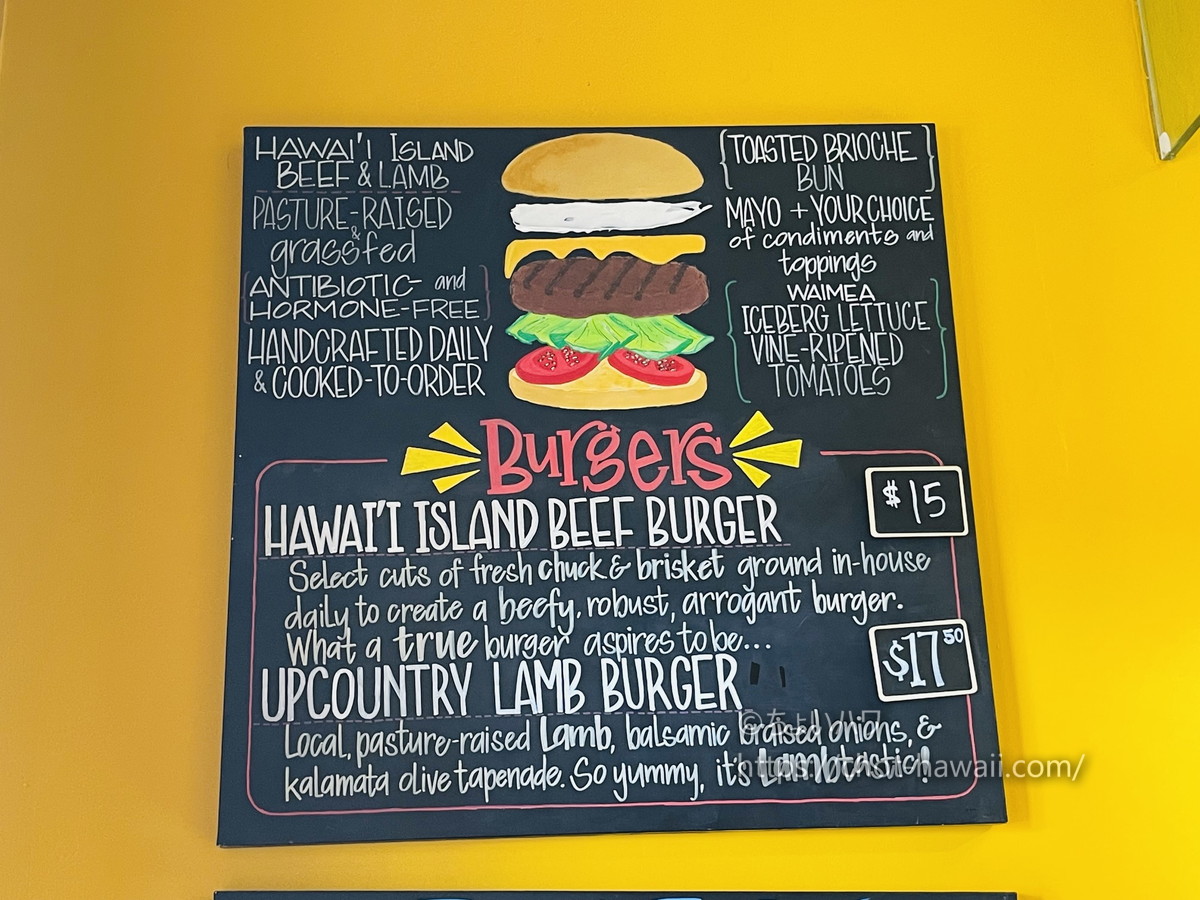 HAWAI'I ISLAND
BEEF & LAMB
PASTURE-RAISED
&
grassfed
ANTIBIOTIC- and
HORMONE-FREE
HANDCRAFTED DAILY
& COOKED-TO-ORDER
TOASTED BRIOCHE
BUN
MAYO + YOUR CHOICE
of condiments and
toppings
WAIMEA
ICEBERG LETTUCE
VINE-RIPENED
TOMATOES
Burgers
HAWAI'I ISLAND BEEF BURGER
$15
Select cuts of fresh chuck & brisket ground in-house
daily to create a beefy, robust, arrogant burger.
What a true burger aspires to be...
UPCOUNTRY LAMB BURGER
$17 50
Local, pasture-raised Lamb, balsamic braised onions, &
kalamata olive tapenade. So yummy, it's Lambtastic!!
-hawaii.com/